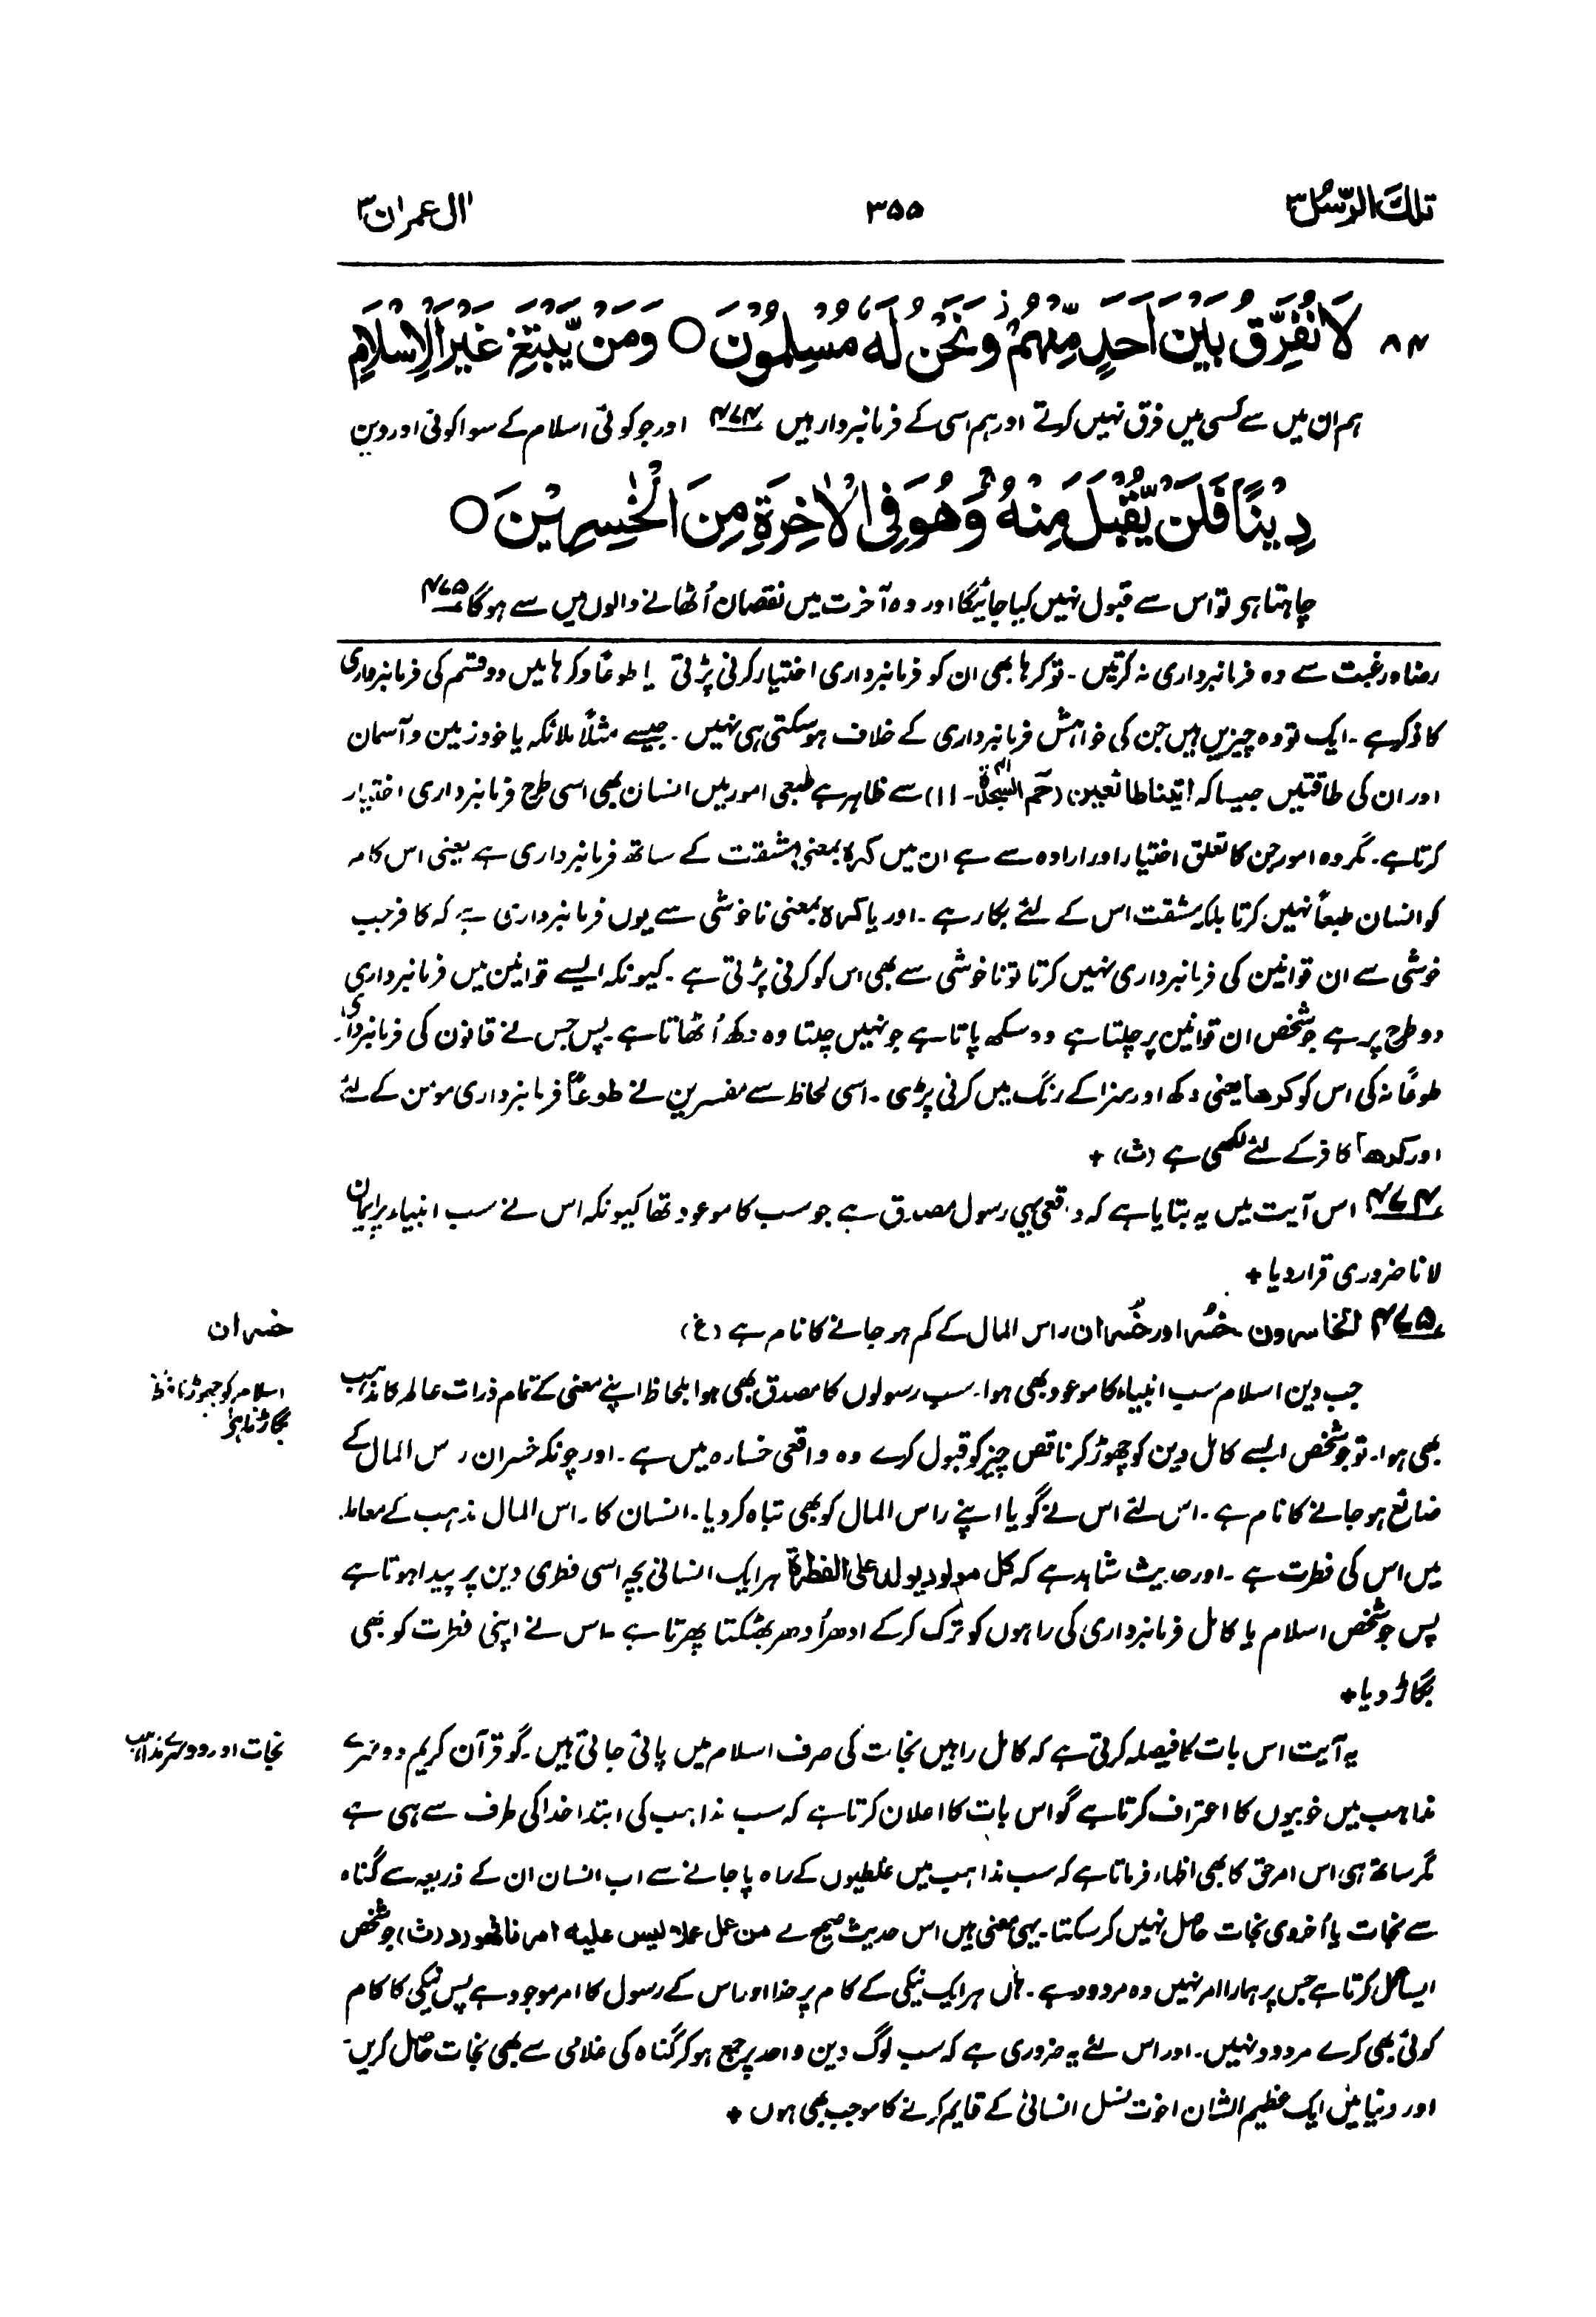 تلك الرّسل ۳
۳۵۵
اٰل عمرٰن ۳
۸۴ لَا نُفَرِّقُ بَيْنَ اَحَدٍ مِّنْهُمْ وَنَحْنُ لَهٗ مُسْلِمُوْنَ ○ وَمَنْ يَّبْتَغِ غَيْرَ الْاِسْلَامِ
ہم ان میں سے کسی میں فرق نہیں کرتے اور ہم اسی کے فرمانبردار ہیں ۴۷۴ اور جو کوئی اسلام کے سوا کوئی اور دین
دِيْنًا فَلَنْ يُّقْبَلَ مِنْهُ ۚ وَهُوَ فِي الْاٰخِرَةِ مِنَ الْخٰسِرِيْنَ ○
چاہتا ہی تو اس سے قبول نہیں کیا جائیگا اور وہ آخرت میں نقصان اُٹھانے والوں میں سے ہوگا ۴۷۵
رضا و رغبت سے وہ فرمانبرداری نہ کرتیں ۔ تو کرہا بھی ان کو فرمانبرداری اختیار کرنی پڑتی یا طوعًا و کرہا میں دو قسم کی فرمانبرداری
کا ذکر ہے ۔ ایک تو وہ چیزیں ہیں جن کی خواہش فرمانبرداری کے خلاف ہو سکتی ہی نہیں ۔ جیسے مثلًا ملائکہ یا خود زمین و آسمان
اور ان کی طاقتیں جیسا کہ اتینا طائعین (حٰم السجدۃ ۔ ۱۱) سے ظاہر ہے طبعی امور میں انسان بھی اسی طرح فرمانبرداری اختیار
کرتا ہے ۔ مگر وہ امور جن کا تعلق اختیار اور ارادہ سے ہے ان میں کرہ بمعنی مشقت کے ساتھ فرمانبرداری ہے یعنی اس کام
کو انسان طبعاً نہیں کرتا بلکہ مشقت اس کے لئے بکار ہے ۔ اور یا کرہ بمعنی ناخوشی سے یوں فرمانبرداری ہے کہ کافر جب
خوشی سے ان قوانین کی فرمانبرداری نہیں کرتا تو ناخوشی سے بھی اس کو کرنی پڑتی ہے ۔ کیونکہ ایسے قوانین میں فرمانبرداری
دو طرح پر ہے جو شخص ان قوانین پر چلتا ہے وہ سکھ پاتا ہے جو نہیں چلتا وہ دکھ اُٹھاتا ہے ۔ پس جس نے قانون کی فرمانبرداری
طوعًا نہ کی اس کو کرھا یعنی دکھ اور سزا کے رنگ میں کرنی پڑی ۔ اسی لحاظ سے مفسرین نے طوعًا فرمانبرداری مومن کے لئے
اور کرھاً کافر کے لئے لکھی ہے (ث) +
۴۷۴ اس آیت میں یہ بتایا ہے کہ واقعی یہی رسول مصدق ہے جو سب کا موعود تھا کیونکہ اس نے سب انبیاء پر ایمان
لانا ضروری قرار دیا +
۴۷۵ الخاسرون ۔ خُسر اور خُسران راس المال کے کم ہو جانے کا نام ہے (غ)
خسران
جب دین اسلام سب انبیاء کا موعود بھی ہوا ۔ سب رسولوں کا مصدق بھی ہوا بلحاظ اپنے معنی کے تمام ذرات عالم کا مذہب
اسلام کو چھوڑنا فطرت
بگاڑنا ہے
بھی ہوا ۔ تو جو شخص ایسے کامل دین کو چھوڑ کر ناقص چیز کو قبول کرے وہ واقعی خسارہ میں ہے ۔ اور چونکہ خسران راس المال کے
ضائع ہو جانے کا نام ہے ۔ اس لئے اس نے گویا اپنے راس المال کو بھی تباہ کر دیا ۔ انسان کا راس المال مذہب کے معاملہ
میں اس کی فطرت ہے ۔ اور حدیث شاہد ہے کہ کل مولود یولد علی الفطرۃ ہر ایک انسانی بچہ اسی فطری دین پر پیدا ہوتا ہے
پس جو شخص اسلام یا کامل فرمانبرداری کی راہوں کو ترک کر کے ادھر اُدھر بھٹکتا پھرتا ہے ۔ اس نے اپنی فطرت کو بھی
بگاڑ دیا +
یہ آیت اس بات کا فیصلہ کرتی ہے کہ کامل راہیں نجات کی صرف اسلام میں پائی جاتی ہیں ۔ گو قرآن کریم دوسرے
نجات اور دوسرے مذاہب
مذاہب میں خوبیوں کا اعتراف کرتا ہے گو اس بات کا اعلان کرتا ہے کہ سب مذاہب کی ابتدا خدا کی طرف سے ہی ہے
مگر ساتھ ہی اس امر حق کا بھی اظہار فرماتا ہے کہ سب مذاہب میں غلطیوں کے راہ پا جانے سے اب انسان ان کے ذریعہ سے گناہ
سے نجات یا اُخروی نجات حاصل نہیں کر سکتا ۔ یہی معنی ہیں اس حدیث صحیح کے من عمل عملا لیس علیہ امرنا فھو رد (ث) جو شخص
ایسا عمل کرتا ہے جس پر ہمارا امر نہیں وہ مردود ہے ۔ ہاں ہر ایک نیکی کے کام پر خدا اور اس کے رسول کا امر موجود ہے پس نیکی کا کام
کوئی بھی کرے مردود نہیں ۔ اور اس لئے یہ ضروری ہے کہ سب لوگ دین واحد پر جمع ہو کر گناہ کی غلامی سے بھی نجات حاصل کریں ۔
اور دنیا میں ایک عظیم الشان اخوت نسل انسانی کے قایم کرنے کا موجب بھی ہوں +